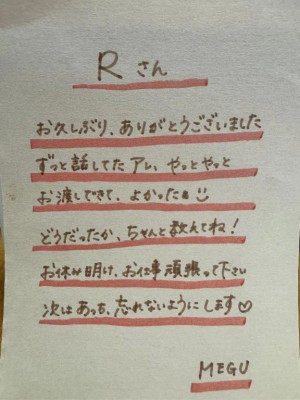 Rさん
お久しぶり、ありがとうございました
ずっと話してたアレ、やっとやっと
お渡しできて、よかったぁ☺
どうだったか、ちゃんと教えてね!
お休み明け、お仕事頑張って下さい
次はあっち、忘れないようにします♡
MEGU